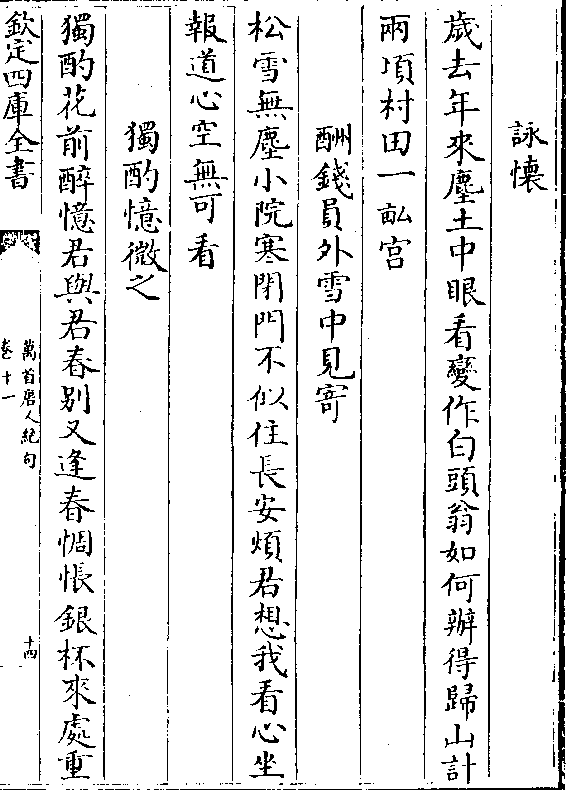 詠懷
歲去年來塵土中眼看變作白頭翁如何辦得歸山計
兩頃村田一畝宮
酬錢員外雪中見寄
松雪無塵小院寒閉門不似住長安煩君想我看心坐
報道心空無可看
獨酌憶微之
獨酌花前醉憶君與君春别又逢春惆悵銀杯來處重
欽定四庫全書
萬首唐人絶句
卷十一
十四